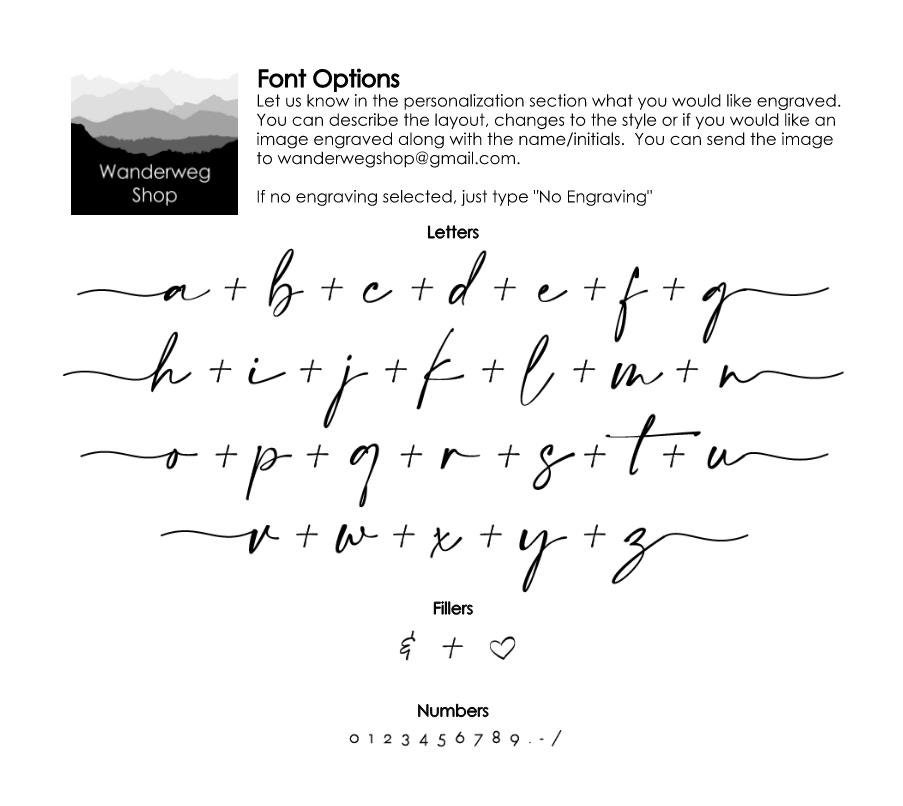 Wanderweg
Shop
Font Options
Let us know in the personalization section what you would like engraved.
You can describe the layout, changes to the style or if you would like an
image engraved along with the name/initials.  You can send the image
to wanderwegshop@gmail.com.
If no engraving selected, just type "No Engraving"
Letters
a + b + c + d + e + f + g
h + i + j + k + l + m + n
o + p + q + r + s + t + u
v + w + x + y + z
Fillers
& + ♡
Numbers
0 1 2 3 4 5 6 7 8 9 . - /